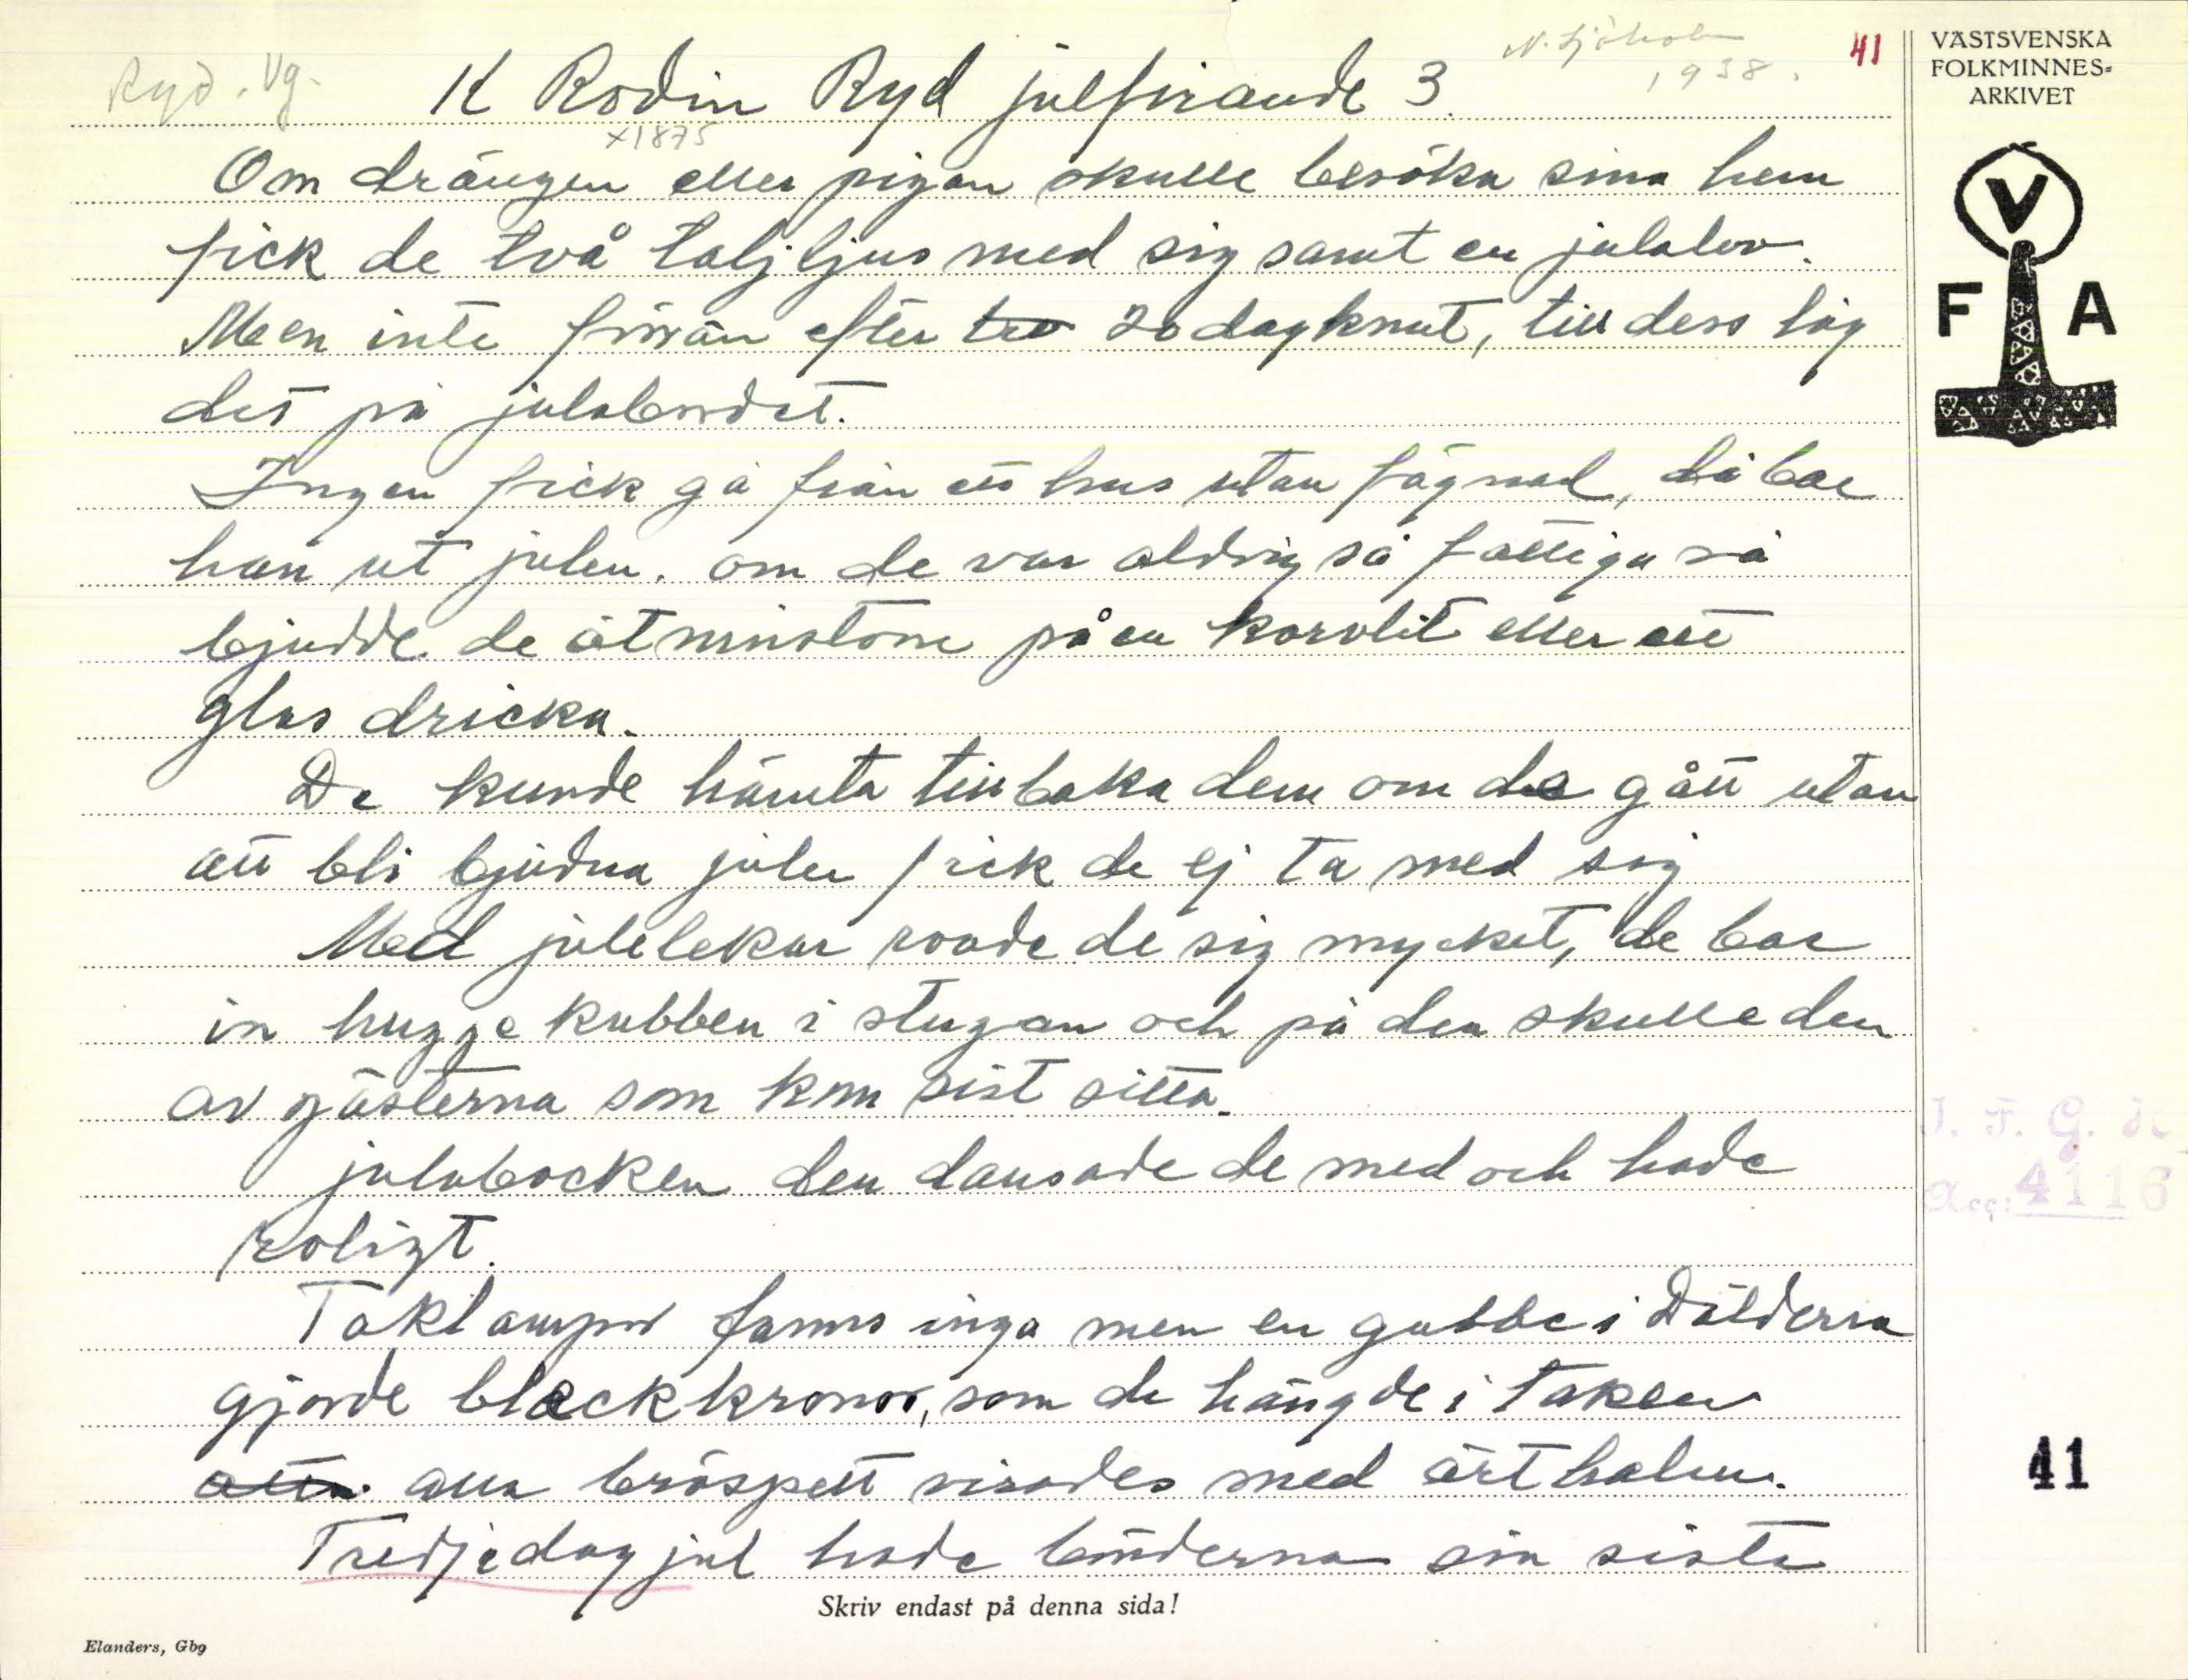 Ryd. Vg.
K Rodin Ryd julfirande 3
N. Sjöholm
1938.
41
x1875
VÄSTSVENSKA
FOLKMINNES-
ARKIVET
V
F A
Om drängen eller pigan skulle besöka sina hem
fick de två taljljus med sig samt en julalev.
Men inte förrän efter 20dagknut, till dess låg
det på julabordet.
Ingen fick gå från ett hus utan fägnad, då bar
han ut julen. om de var aldrig så fattiga så
bjudde de åtminstone på en korvbit eller ett
glas dricka.
De kunde hämta tillbaka dem om de gått utan
att bli bjudna julen fick de ej ta med sig
Med julelekar roade de sig mycket, de bar
in huggekubben i stugan och på den skulle den
av gästerna som kom sist sitta.
julabocken den dansade de med och hade
roligt.
Taklampor fanns inga men en gubbe i Dälderna
gjorde bleckkronor, som de hängde i taken
alla bröspett visades med ärthalm.
Tredjedag jul hade bönderna sin sista
Skriv endast på denna sida!
Elanders, Gbg
I. F. G.
Acc: 4116
41